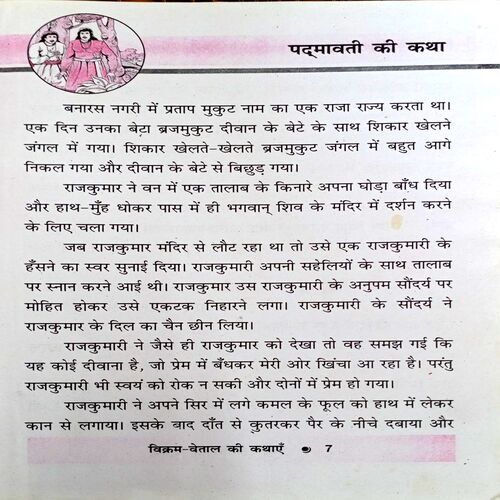 पद्मावती की कथा
बनारस नगरी में प्रताप मुकुट नाम का एक राजा राज्य करता था।
एक दिन उनका बेटा ब्रजमुकुट दीवान के बेटे के साथ शिकार खेलने
जंगल में गया। शिकार खेलते-खेलते ब्रजमुकुट जंगल में बहुत आगे
निकल गया और दीवान के बेटे से बिछुड़ गया।
राजकुमार ने वन में एक तालाब के किनारे अपना घोड़ा बाँध दिया
और हाथ-मुँह धोकर पास में ही भगवान् शिव के मंदिर में दर्शन करने
के लिए चला गया।
जब राजकुमार मंदिर से लौट रहा था तो उसे एक राजकुमारी के
हँसने का स्वर सुनाई दिया। राजकुमारी अपनी सहेलियों के साथ तालाब
पर स्नान करने आई थी। राजकुमार उस राजकुमारी के अनुपम सौंदर्य पर
मोहित होकर उसे एकटक निहारने लगा। राजकुमारी के सौंदर्य ने
राजकुमार के दिल का चैन छीन लिया।
राजकुमारी ने जैसे ही राजकुमार को देखा तो वह समझ गई कि
यह कोई दीवाना है, जो प्रेम में बँधकर मेरी ओर खिंचा आ रहा है। परंतु
राजकुमारी भी स्वयं को रोक न सकी और दोनों में प्रेम हो गया।
राजकुमारी ने अपने सिर में लगे कमल के फूल को हाथ में लेकर
कान से लगाया। इसके बाद दाँत से कुतरकर पैर के नीचे दबाया और
विक्रम-वेताल की कथाएँ ● 7